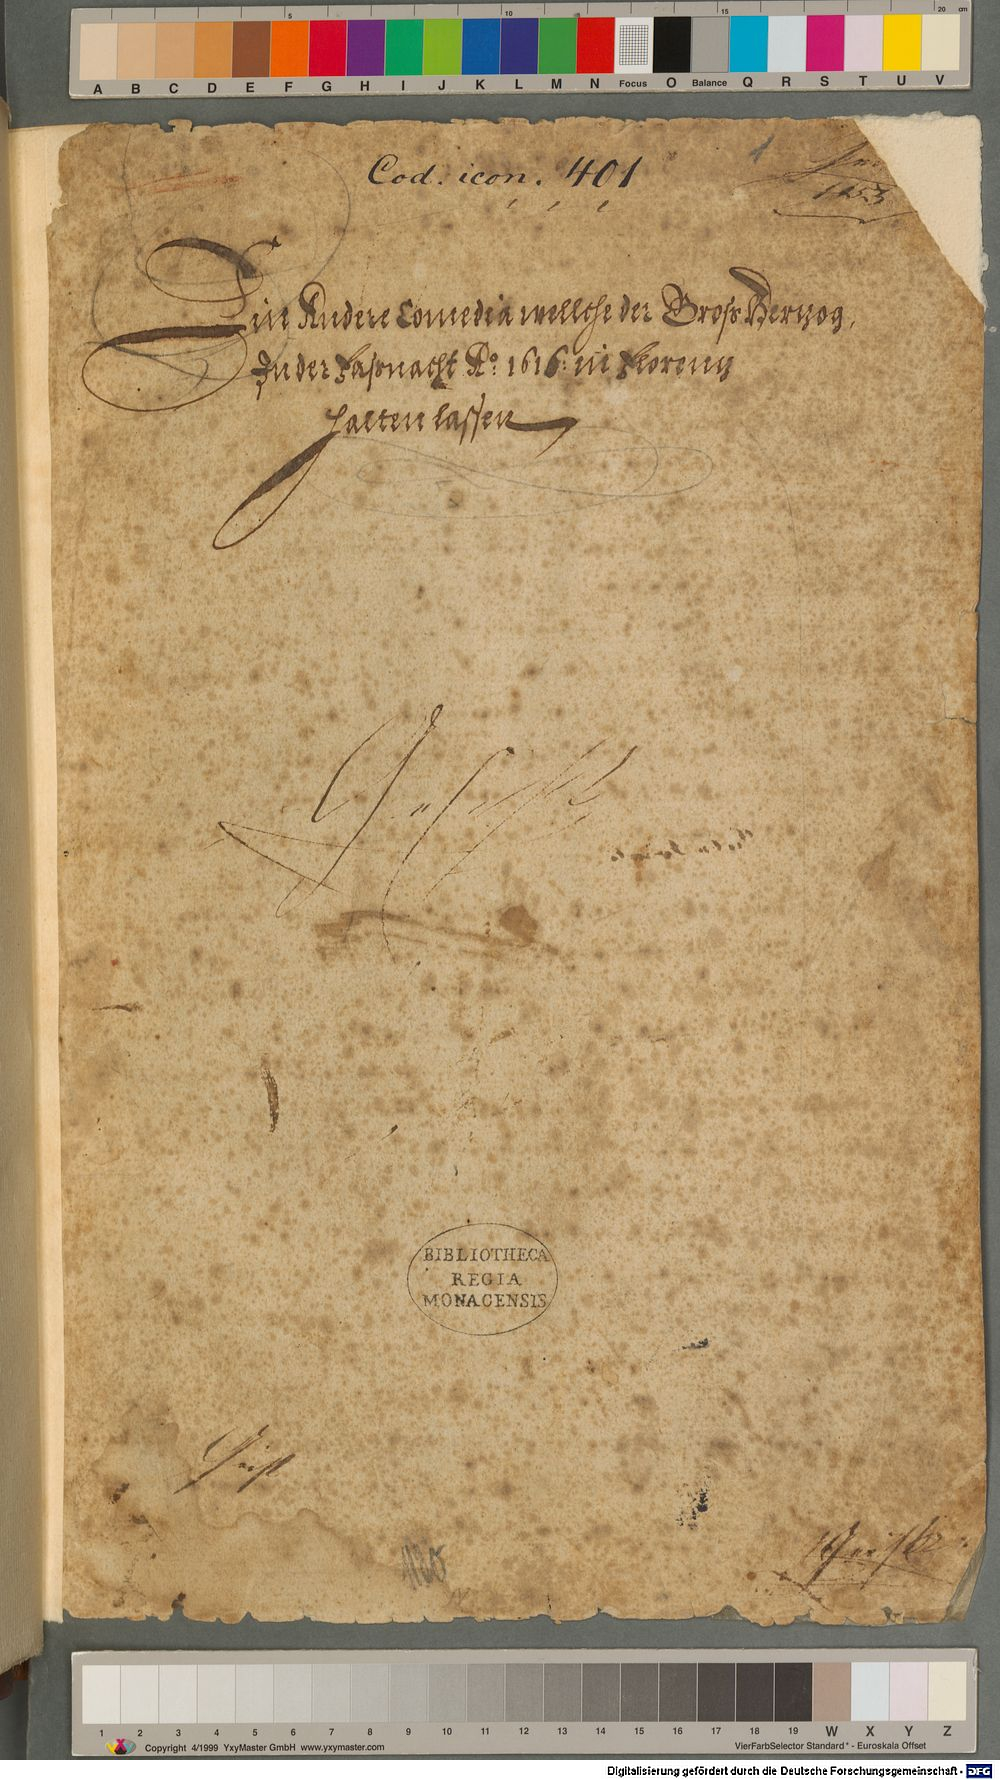 A B C D E F G H I J K L M N Focus O Balance Q R S T U V
5 10 15 20 cm
Cod. icon. 401
1
1253
Die Andere Comedia wellche der Gross Hertzog,
In der fasnacht Ao: 1616: in florentz
halten lassen
BIBLIOTHECA
REGIA
MONACENSIS
1 2 3 4 5 6 7 8 9 10 11 12 13 14 15 16 17 18 19 W X Y Z
Copyright 4/1999 YxyMaster GmbH www.yxymaster.com
VierFarbSelector Standard* - Euroskala Offset
Digitalisierung gefördert durch die Deutsche Forschungsgemeinschaft - DFG